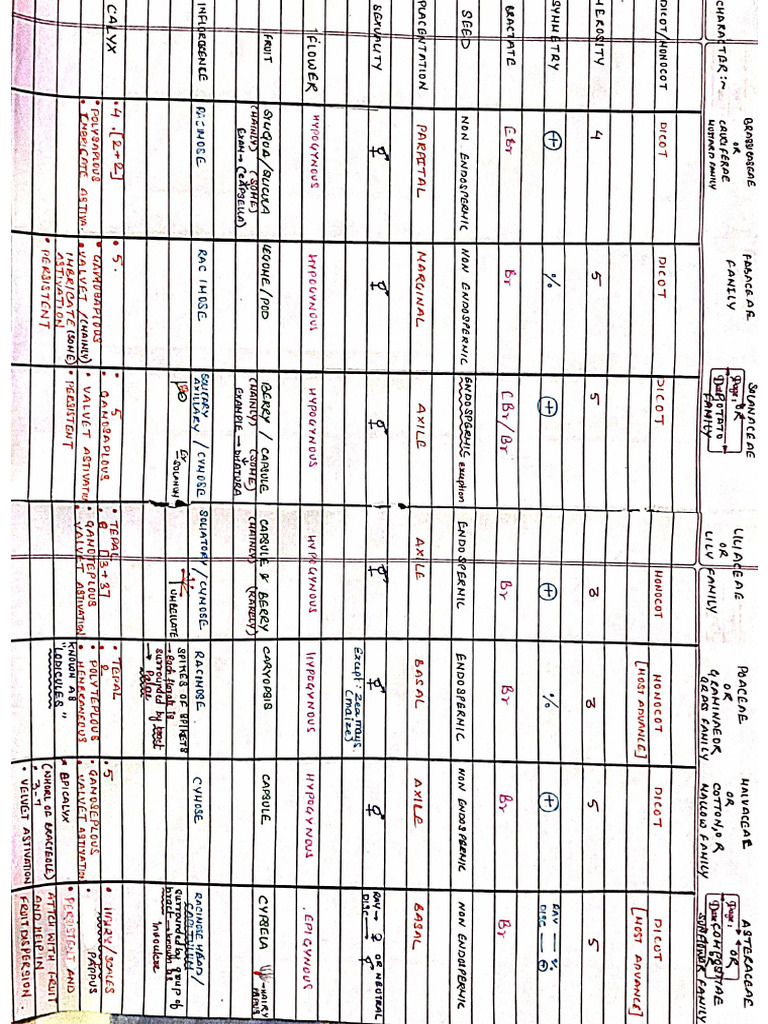 CHARACTER:-
BRASSICACEAE
OR
CRUCIFERAE
MUSTARD FAMILY
FABACEAE
FAMILY
SOLANACEAE
OR
POTATO
FAMILY
LILIACEAE
OR
LILY FAMILY
POACEAE
OR
GRAMINAE OR
GRASS FAMILY
MALVACEAE
OR
COTTON, OR
MALLOW FAMILY
ASTERACEAE
OR
COMPOSITIAE
SUNFLOWER FAMILY
DICOT/MONOCOT
DICOT
DICOT
DICOT
MONOCOT
MONOCOT
[MOST ADVANCE]
DICOT
DICOT
[MOST ADVANCE]
MEROSITY
4
5
5
3
3
5
5
SYMMETRY
⊕
%
⊕
⊕
%
⊕
RAY — %
DISC — ⊕
BRACTATE
EBr
Br
EBr/Br
Br
Br
Br
Br
SEED
NON ENDOSPERMIC
NON ENDOSPERMIC
ENDOSPERMIC exception
ENDOSPERMIC
ENDOSPERMIC
NON ENDOSPERMIC
NON ENDOSPERMIC
PLACENTATION
PARPITAL
MARGINAL
AXILE
AXILE
BASAL
AXILE
BASAL
SEXUALITY
⚥
⚥
⚥
⚥
⚥
Except: Zea mays.
(maize)
⚥
RAY → ♀ OR NEUTRAL
DISC → ⚥
FLOWER
HYPOGYNOUS
HYPOGYNOUS
HYPOGYNOUS
HYPOGYNOUS
HYPOGYNOUS
HYPOGYNOUS
EPIGYNOUS
FRUIT
SILIQUA/SILICULA
(MAINLY) (SOME)
EXAM → (CAPSELLA)
LEGUME/POD
BERRY / CAPSULE
(MAINLY) (SOME)
EXAMPLE → DHATURA
CAPSULE & BERRY
(MAINLY) (RARELY)
CARYOPSIS
CAPSULE
CYPSELA → HAIRY
PAPPUS
INFLORESENCE
RACIMOSE
RACIMOSE
SOLITARY
AXILLARY / CYMOSE
EX
SOLANUM
SOLIATORY / CYMOSE
UMBELLATE
RACIMOSE.
SPIKES OF SPIKETS
→ Each florate is
surrounded by
→ Palea
CYMOSE
RACIMOSE HEAD /
CAPITULUM
surrounded by group of
bract → known as
Involucre
CALYX
• 4. [2+2]
• POLYSAPLOUS
IMBRICATE ASTIVA.
• 5.
• GAMOSAPLOUS
• VALVET / (MAINLY)
IMBRICATE (SOME)
ASTIVATION
• PERSISTENT
• 5
• GAMOSAPLOUS
• VALVET ASTIVATION
• PERSISTENT
• TEPAL
• 6 [3+3]
• GAMOTEPLOUS
• VALVET ASTIVATION
• TEPAL
• 2
• POLYTEPLOUS
• MEMBRANEOUS
KNOWN AS
"LODICULES"
• 5
• GAMOSEPLOUS
• VALVET ASTIVATION
• EPICALYX
(WHORL OF BRACTEOLE)
• 3-7
• VELVET ASTIVATION
• HAIRY / SCALES
• PAPPUS
• PERSISTENT AND
ATTCH WITH FRUIT
AND HELP IN
FRUIT DISPERSION.